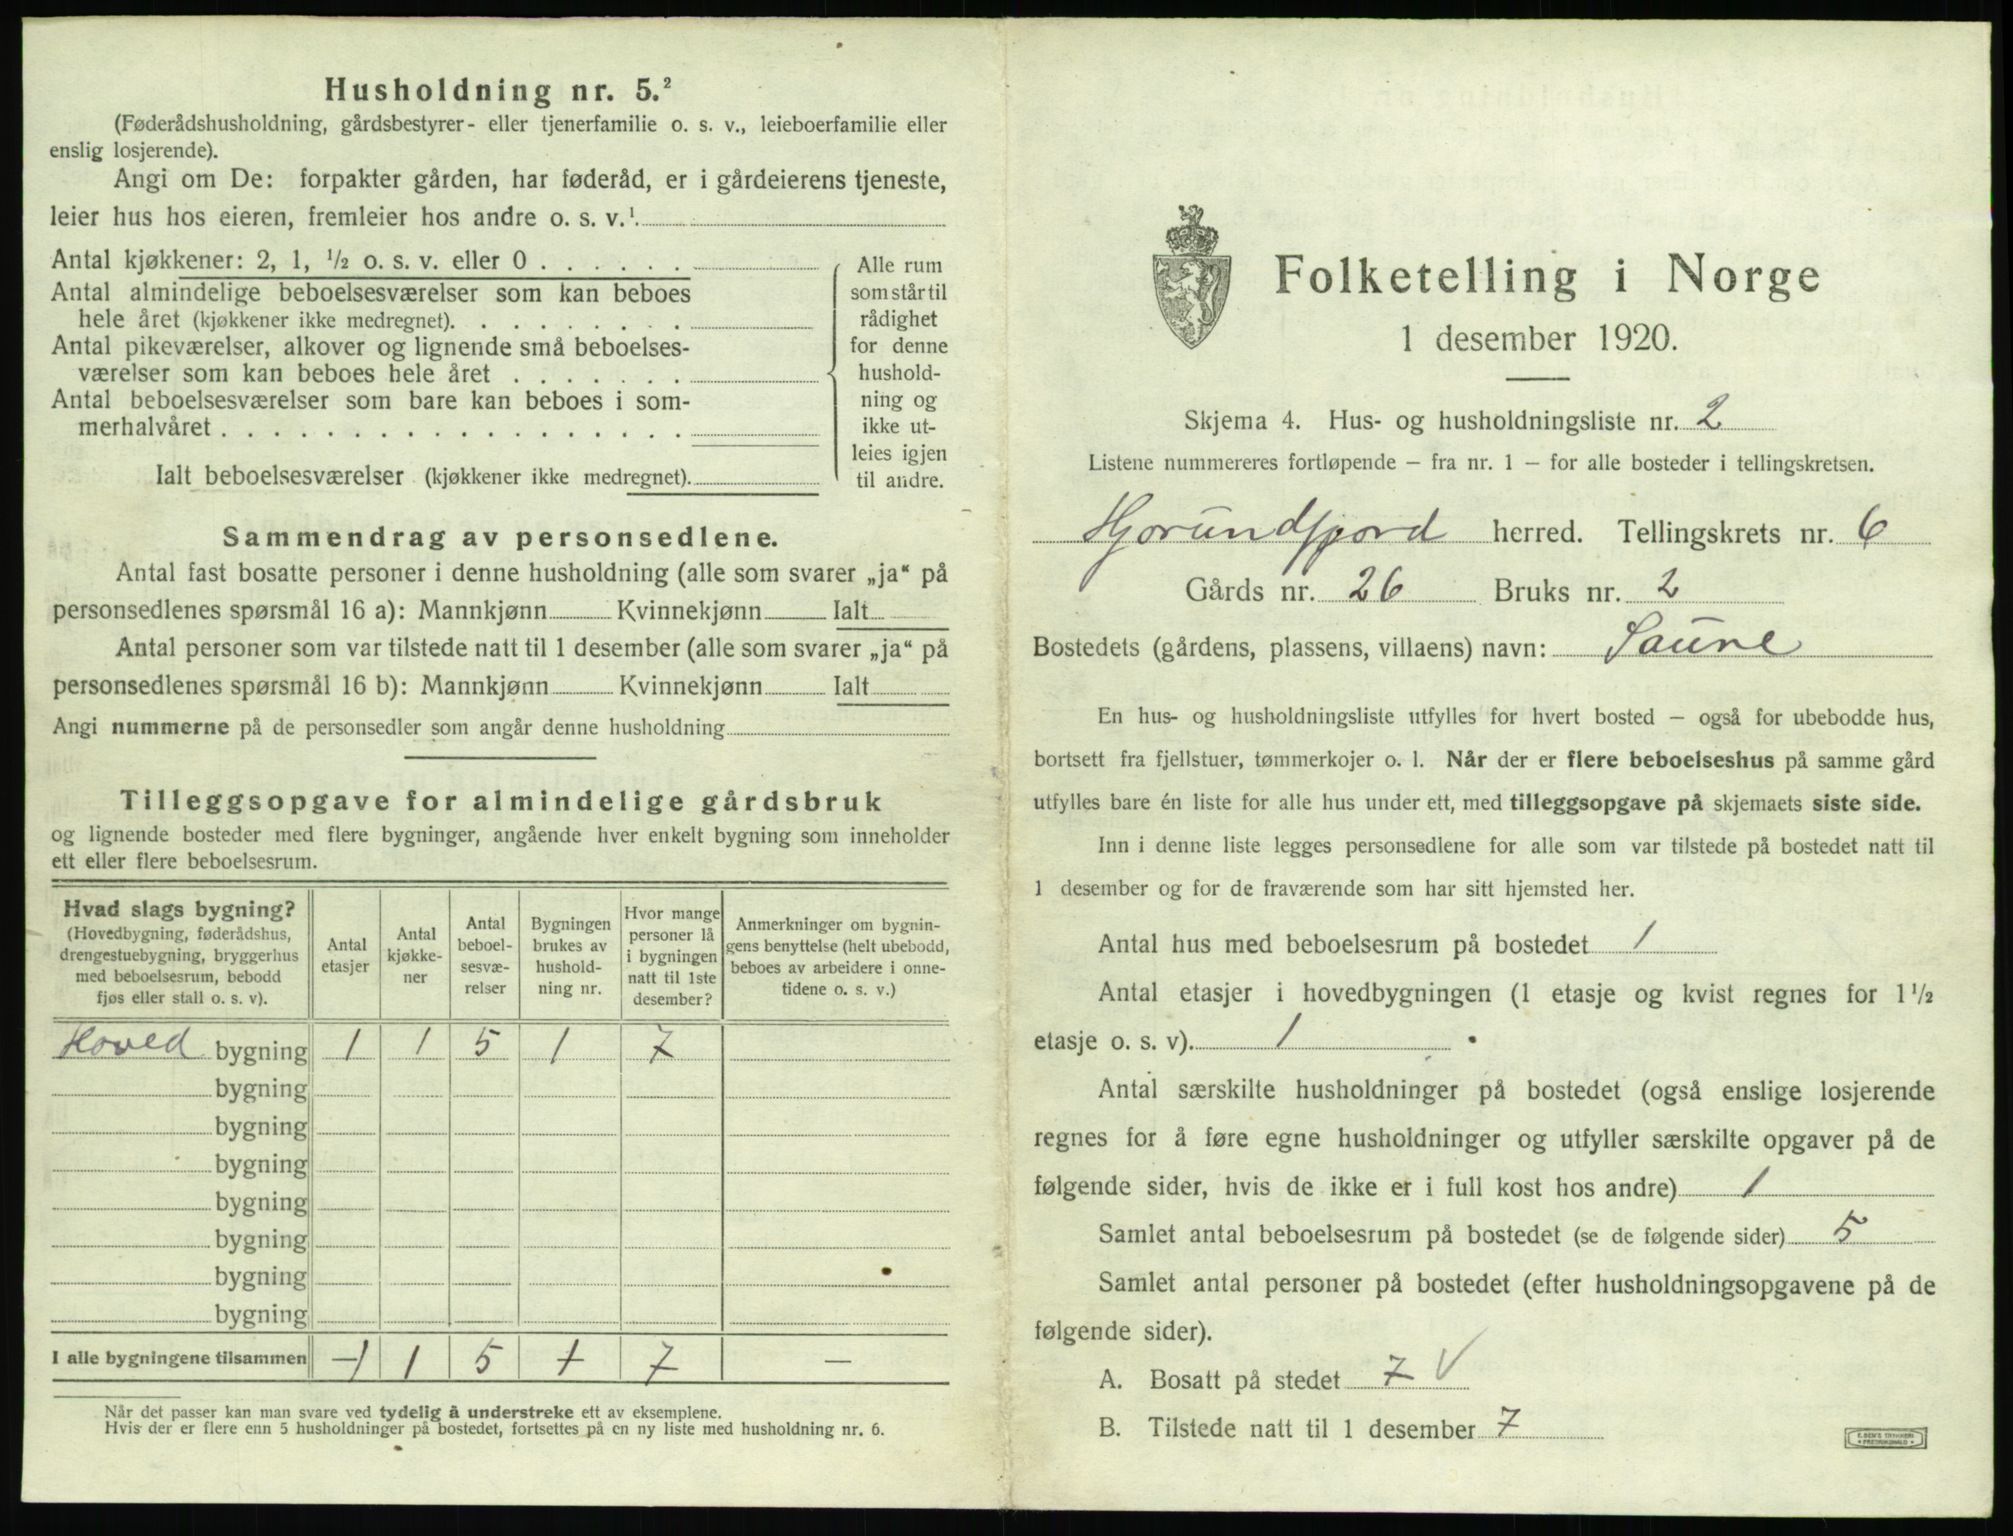 Husholdning nr. 5.²
(Føderådshusholdning, gårdsbestyrer- eller tjenerfamilie o. s. v., leieboerfamilie eller
enslig losjerende).
Angi om De: forpakter gården, har føderåd, er i gårdeierens tjeneste,
leier hus hos eieren, fremleier hos andre o. s. v.¹
Antal kjøkkener: 2, 1, ½ o. s. v. eller 0 . . . . . .
Antal almindelige beboelsesværelser som kan beboes
hele året (kjøkkener ikke medregnet). . . . . . . . .
Antal pikeværelser, alkover og lignende små beboelses-
værelser som kan beboes hele året . . . . . . .
Antal beboelsesværelser som bare kan beboes i som-
merhalvåret . . . . . . . . . . . . . . . . . .
Ialt beboelsesværelser (kjøkkener ikke medregnet).
Alle rum
som står til
rådighet
for denne
hushold-
ning og
ikke ut-
leies igjen
til andre.
Sammendrag av personsedlene.
Antal fast bosatte personer i denne husholdning (alle som svarer „ja“ på
personsedlenes spørsmål 16 a): Mannkjønn Kvinnekjønn Ialt
Antal personer som var tilstede natt til 1 desember (alle som svarer „ja“ på
personsedlenes spørsmål 16 b): Mannkjønn Kvinnekjønn Ialt
Angi nummerne på de personsedler som angår denne husholdning
Tilleggsopgave for almindelige gårdsbruk
og lignende bosteder med flere bygninger, angående hver enkelt bygning som inneholder
ett eller flere beboelsesrum.
Hvad slags bygning?
(Hovedbygning, føderådshus,
drengestuebygning, bryggerhus
med beboelsesrum, bebodd
fjøs eller stall o. s. v).
Antal
etasjer
Antal
kjøkke-
ner
Antal
beboel-
sesvæ-
relser
Bygningen
brukes av
hushold-
ning nr.
Hvor mange
personer lå
i bygningen
natt til 1ste
desember?
Anmerkninger om bygnin-
gens benyttelse (helt ubebodd,
beboes av arbeidere i onne-
tidene o. s. v.)
Hoved bygning 1 1 5 1 7
bygning
bygning
bygning
bygning
bygning
bygning
bygning
I alle bygningene tilsammen 1 1 5 1 7 —
Når det passer kan man svare ved tydelig å understreke ett av eksemplene.
Hvis der er flere enn 5 husholdninger på bostedet, fortsettes på en ny liste med husholdning nr. 6.
Folketelling i Norge
1 desember 1920.
Skjema 4. Hus- og husholdningsliste nr. 2
Listene nummereres fortløpende – fra nr. 1 – for alle bosteder i tellingskretsen.
Hjørundfjord herred. Tellingskrets nr. 6
Gårds nr. 26 Bruks nr. 2
Bostedets (gårdens, plassens, villaens) navn: Saure
En hus- og husholdningsliste utfylles for hvert bosted – også for ubebodde hus,
bortsett fra fjellstuer, tømmerkojer o. l. Når der er flere beboelseshus på samme gård
utfylles bare én liste for alle hus under ett, med tilleggsopgave på skjemaets siste side.
Inn i denne liste legges personsedlene for alle som var tilstede på bostedet natt til
1 desember og for de fraværende som har sitt hjemsted her.
Antal hus med beboelsesrum på bostedet 1
Antal etasjer i hovedbygningen (1 etasje og kvist regnes for 1½
etasje o. s. v). 1
Antal særskilte husholdninger på bostedet (også enslige losjerende
regnes for å føre egne husholdninger og utfyller særskilte opgaver på de
følgende sider, hvis de ikke er i full kost hos andre) 1
Samlet antal beboelsesrum på bostedet (se de følgende sider) 5
Samlet antal personer på bostedet (efter husholdningsopgavene på de
følgende sider).
A. Bosatt på stedet 7 V
B. Tilstede natt til 1 desember 7